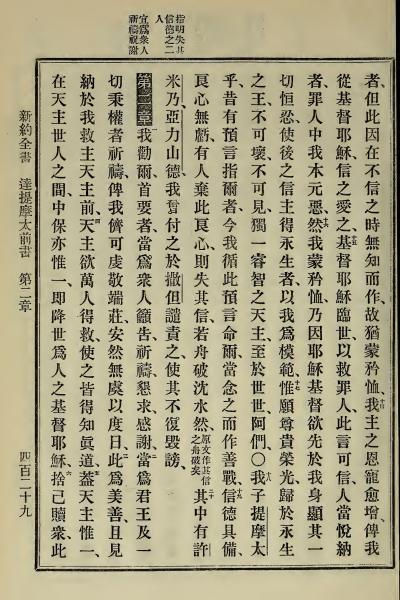 指明失其
信德之二
人
宜爲衆人
祈禱祝謝
者但此因在不信之時無知而作故猶蒙矜恤十四我主之恩寵愈增俾我
從基督耶穌信之愛之十五基督耶穌臨世以救罪人此言可信人當悅納
者罪人中我本元惡十六然我蒙矜恤乃因耶穌基督欲先於我身顯其一
切恒忍使後之信主得永生者以我爲模範十七惟願尊貴榮光歸於永生
之王不可壞不可見獨一睿智之天主至於世世阿們〇十八我子提摩太
乎昔有預言指爾者今我循此預言命爾當念之而作善戰十九信德具備
良心無虧有人棄此良心則失其信若舟破沈水然原文作其信之舟破矣二十其中有許
米乃亞力山德我曾付之於撒但譴責之使其不復毀謗
第二章一我勸爾首要者當爲衆人籲告祈禱懇求感謝二當爲君王及一
切秉權者祈禱俾我儕可虔敬端莊安然無虞以度日三此爲美善且見
納於我救主天主前四天主欲萬人得救使之皆得知眞道五蓋天主惟一
在天主世人之間中保亦惟一卽降世爲人之基督耶穌六捨己贖衆此
新約全書 達提摩太前書 第二章 四百二十九